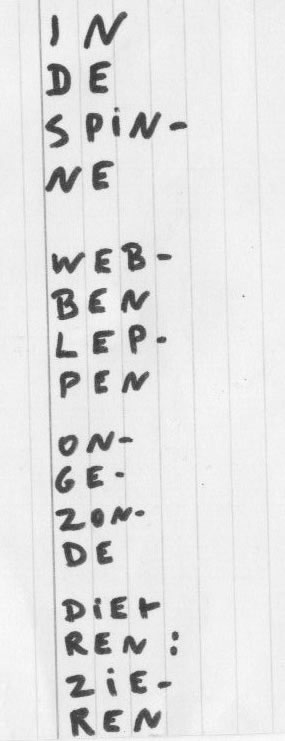 IN
DE
SPiN-
NE
WEB-
BEN
LEP-
PEN
ON-
GE-
ZON-
DE
DiE-
REN:
ZiE-
REN